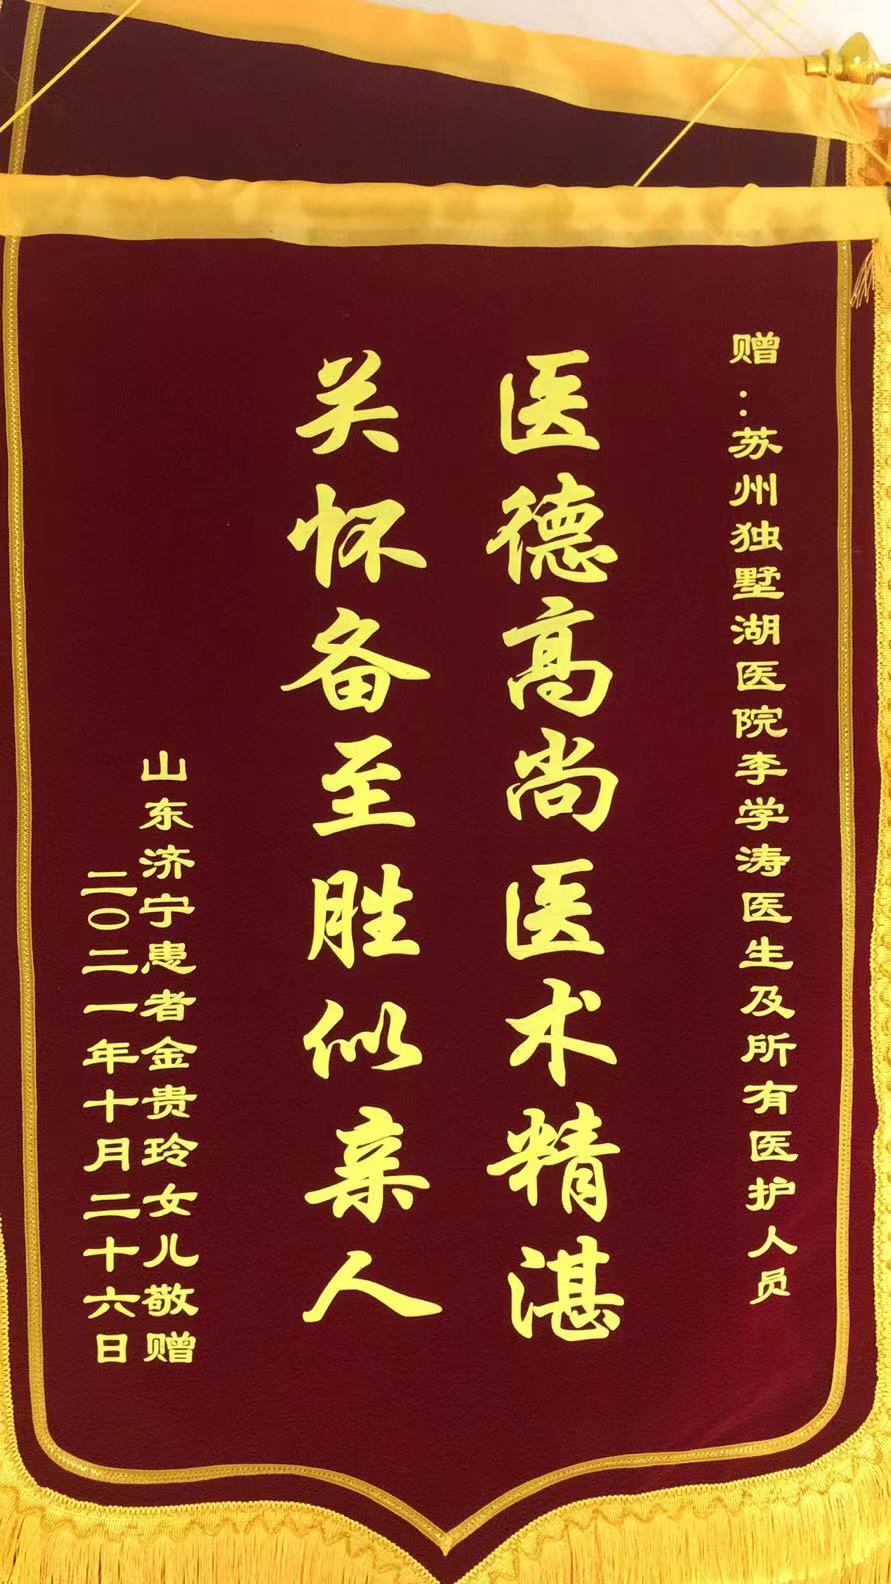 赠：苏州独墅湖医院李学涛医生及所有医护人员
医德高尚医术精湛
关怀备至胜似亲人
山东济宁患者金贵玲女儿敬赠
二〇二一年十月二十六日